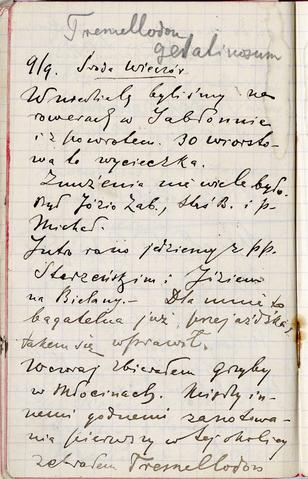 Tremellodon
gelatinosum
9/9. Środa wieczór
W niedzielę byliśmy na
rowerach w Jabłonnie
i z powrotem. 30 wiorsto-
wa to wycieczka.
Zmużenia nie wiele było.
Był Józio Zab., Staś B. i p.
Michał.
Jutro rano jedziemy z pp.
Starzeńskim i Józiem
na Bielany. – Dla mnie to
bagatelna już przejażdżka,
takem się wprawił.
Wczoraj zbierałem grzyby
w Młocinach. Między in-
nemi godnemi zanotowa-
nia pierwszy w tej okolicy
zebrałem Tremellodon